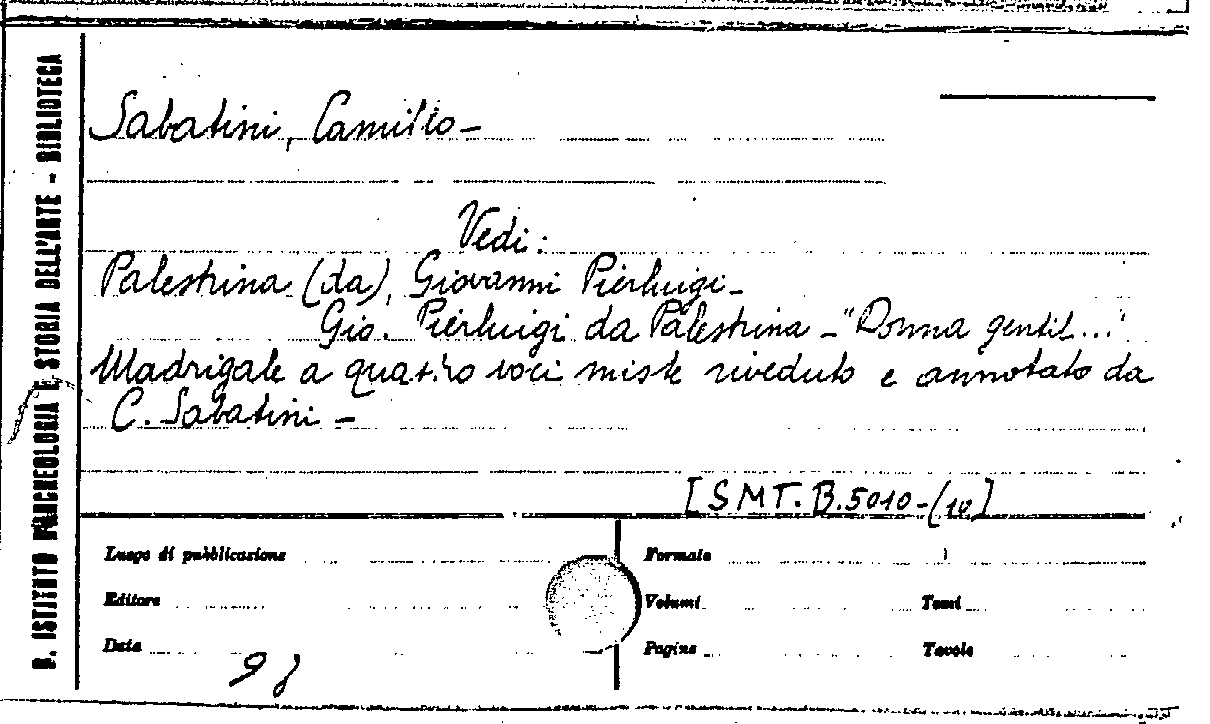 R. ISTITUTO D'ARCHEOLOGIA E STORIA DELL'ARTE - BIBLIOTECA
Sabatini, Camillo -
Vedi:
Palestrina (da), Giovanni Pierluigi -
Gio. Pierluigi da Palestrina - "Donna gentil..."
Madrigale a quattro voci miste riveduto e annotato da
C. Sabatini -
[SMT. B. 5010 - (10]
Luogo di pubblicazione
Formato
Editore
Volumi
Tomi
Data
Pagine
Tavole